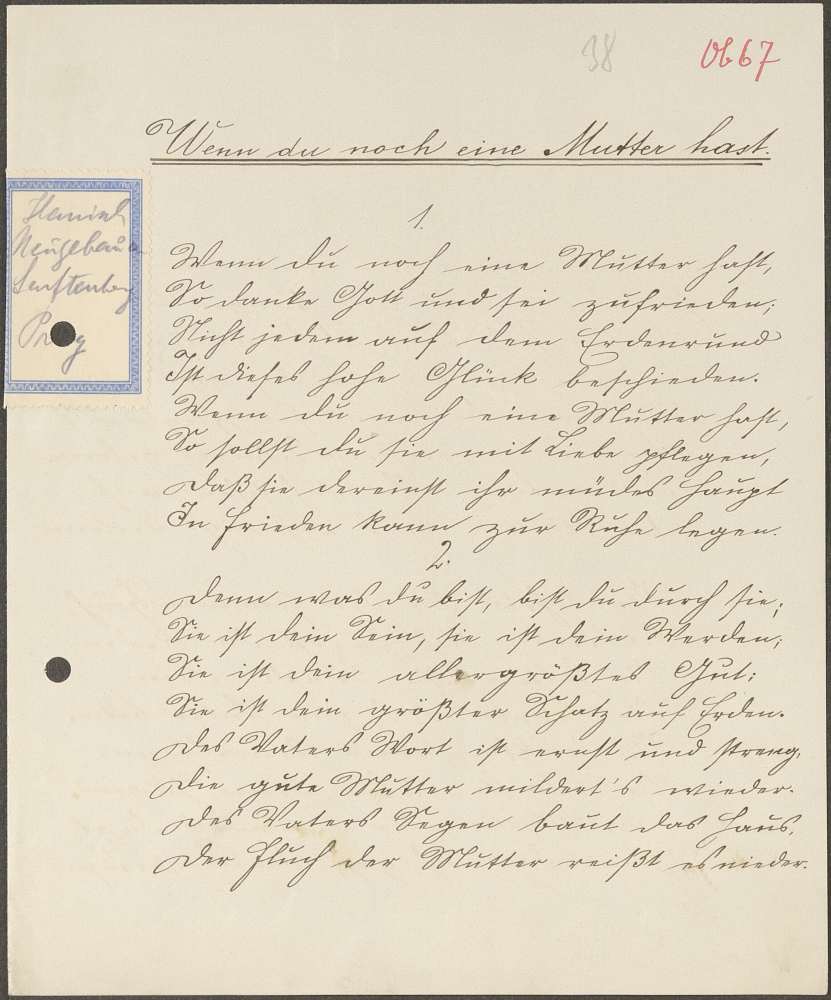 38
Ob 67
Wenn du noch eine Mutter hast.
Neugebauer
Senftenberg
Prag
1.
Wenn du noch eine Mutter hast,
So danke Gott und sei zufrieden;
Nicht jedem auf dem Erdenrund
Ist dieses hohe Glück beschieden.
Wenn du noch eine Mutter hast,
So sollst du sie mit Liebe pflegen,
Daß sie dereinst ihr müdes Haupt
In Frieden kann zur Ruhe legen.
2.
Denn was du bist, bist du durch sie;
Sie ist dein Sein, sie ist dein Werden;
Sie ist dein allergrößtes Gut;
Sie ist dein größter Schatz auf Erden.
Des Vaters Wort ist ernst und streng,
Die gute Mutter mildert's wieder.
Des Vaters Segen baut das Haus,
Der Fluch der Mutter reißt es nieder.